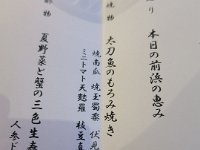 り
本日の前浜の恵み
焼物
太刀魚のもろみ焼き
焼南瓜 焼玉蜀黍 伏見
ミニトマト天麩羅 枝豆真
夏野菜と蟹の三色生春
人参ド